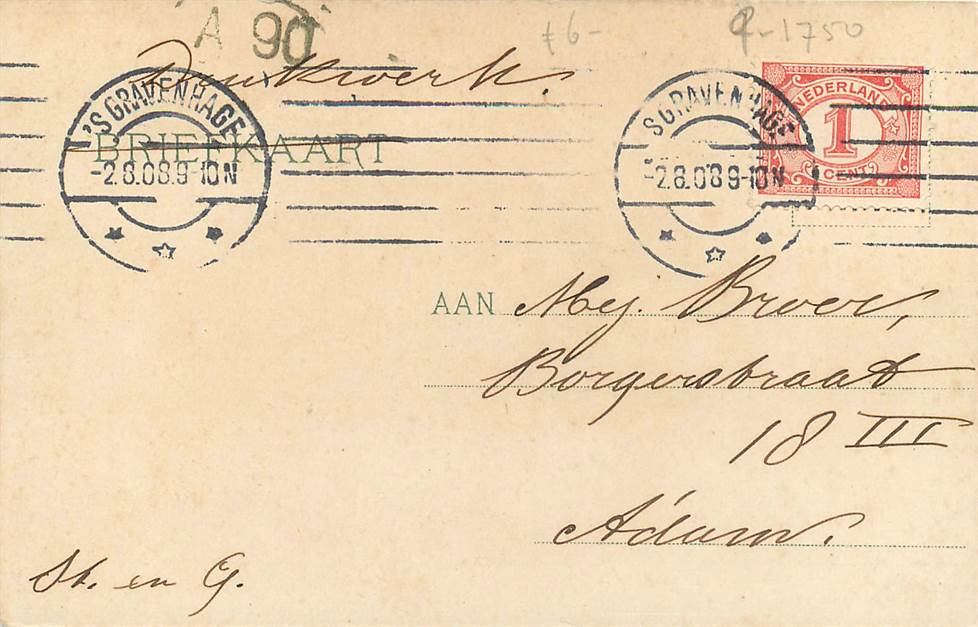 A 90
f 6- 1750
Drukwerk.
'S GRAVENHAGE
-2.8.08 9-10N
'S GRAVENHAGE
-2.8.08 9-10N
NEDERLAND
1
CENT
BRIEFKAART
AAN Mej. Broer,
Borgerstraat
18 III
A'dam.
St. en G.